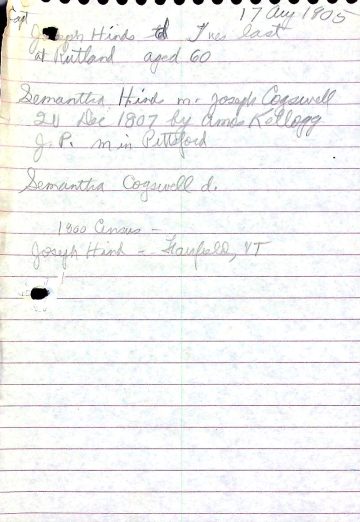 17 Aug 1805
Capt Joseph Hinds d Tues last
at Rutland aged 60
Semantha Hinds m. Joseph Cogswell
Dec 1807 by Amos Kellogg
J. P. m in Pittsford
Semantha Cogswell d.
1800 Census -
Joseph Hind - Fairfield, VT